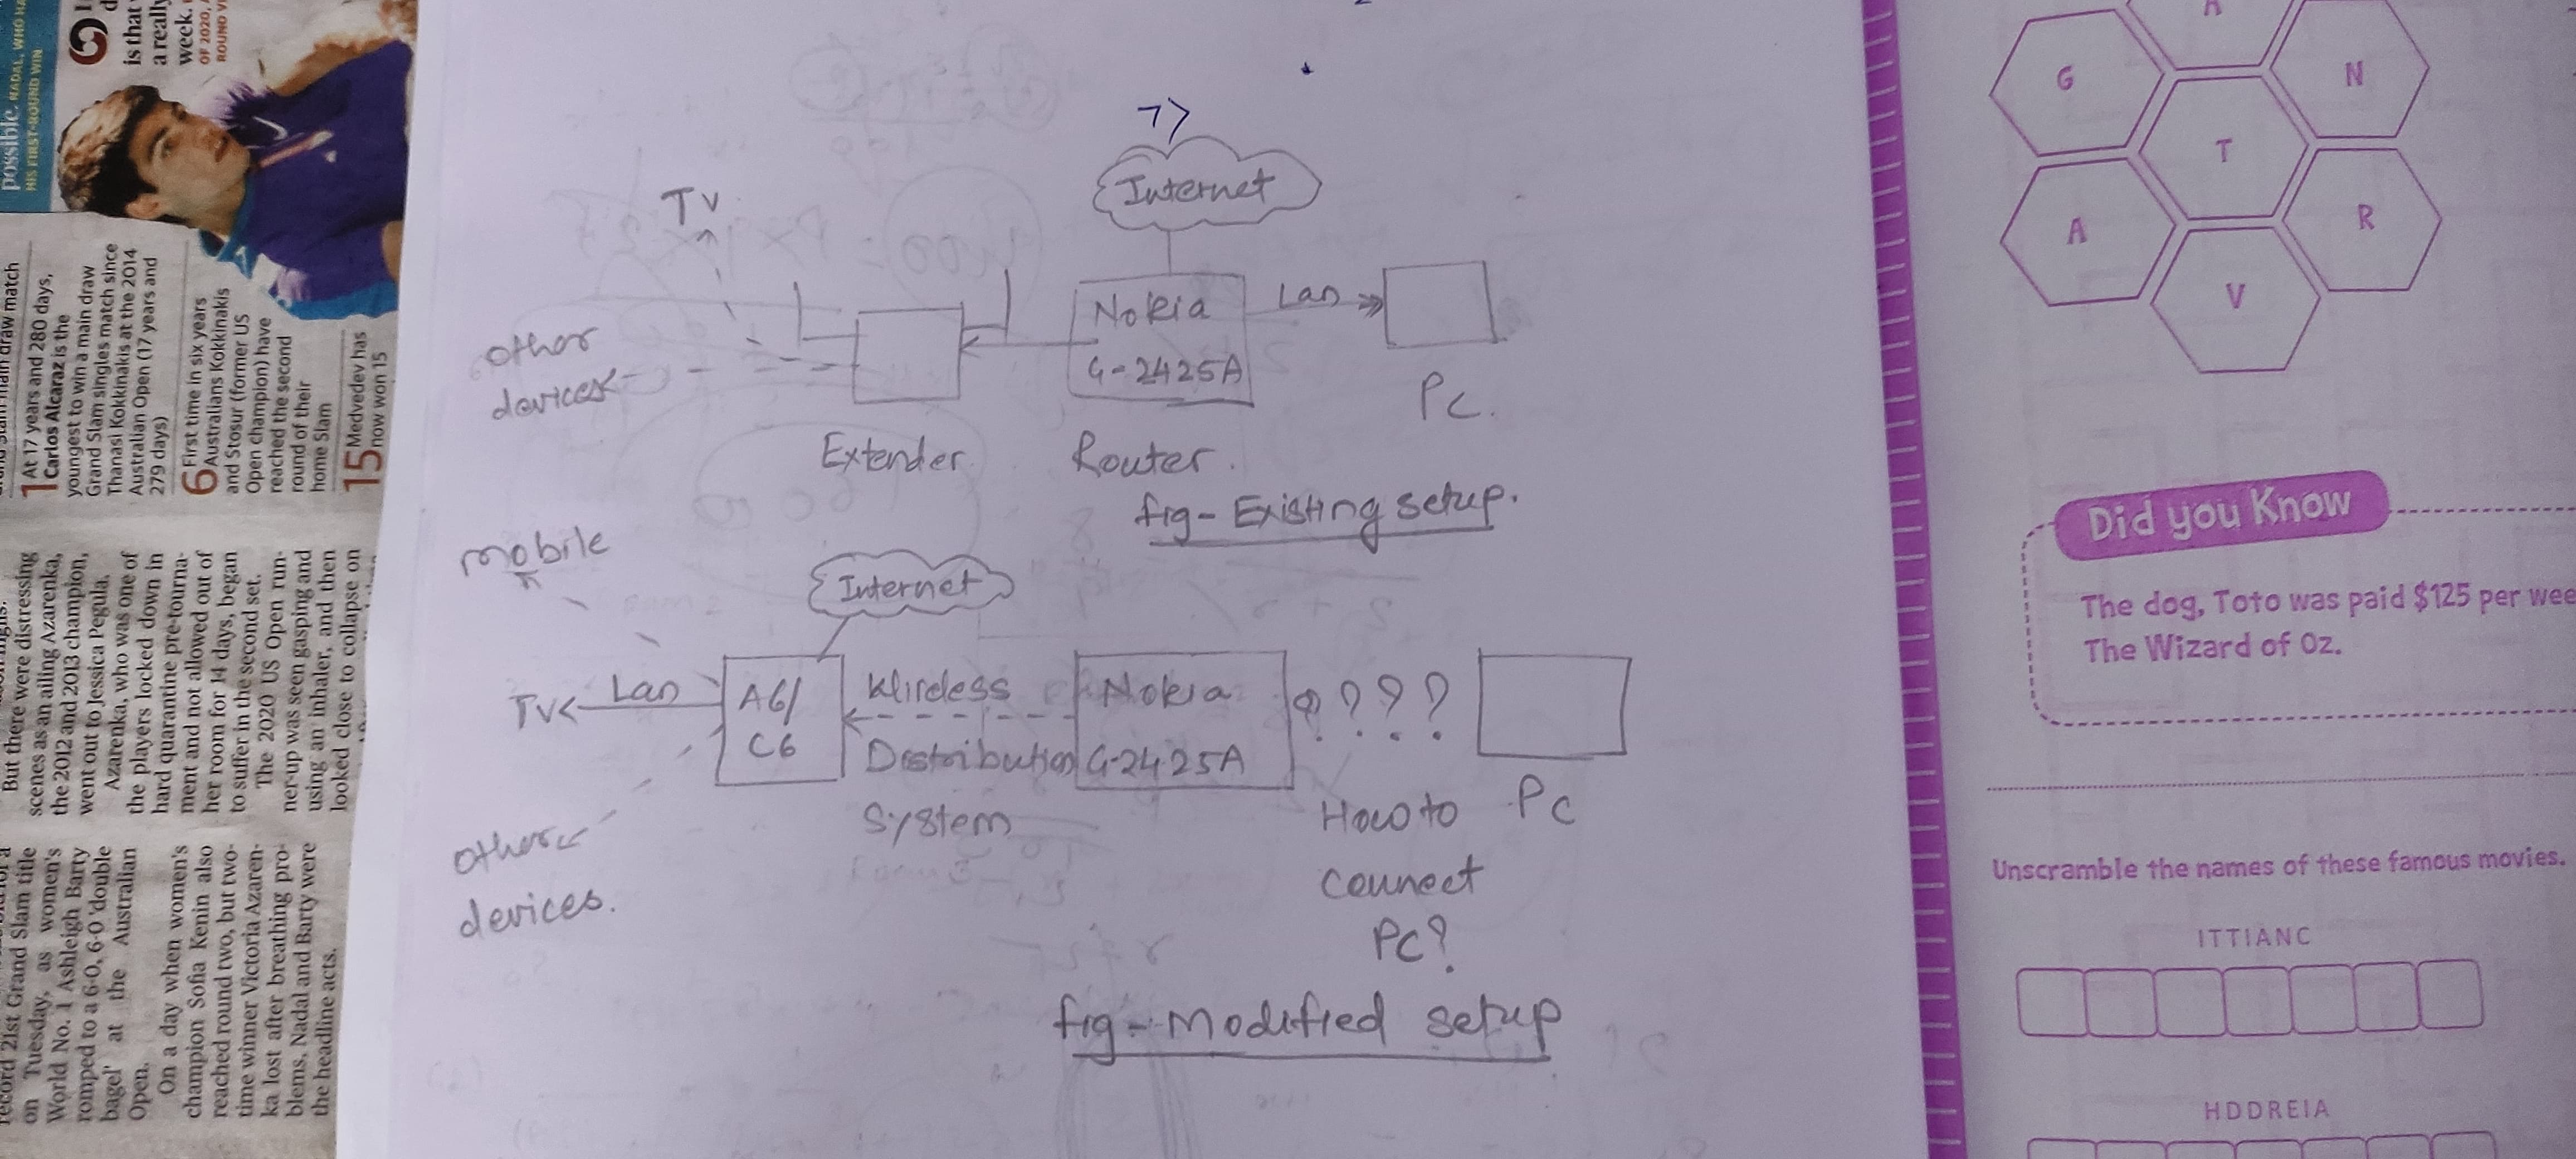 possible. NADAL, WHO HA
HIS FIRST-ROUND WIN
is that
a really
week.
OF 2020,
ROUND
draw match
1 At 17 years and 280 days,
Carlos Alcaraz is the
youngest to win a main draw
Grand Slam singles match since
Thanasi Kokkinakis at the 2014
Australian Open (17 years and
279 days)
6 First time in six years
Australians Kokkinakis
and Stosur (former US
Open champion) have
reached the second
round of their
home Slam
15 Medvedev has
now won 15
But there were distressing
scenes as an ailing Azarenka,
the 2012 and 2013 champion,
went out to Jessica Pegula.
Azarenka, who was one of
the players locked down in
hard quarantine pre-tourna-
ment and not allowed out of
her room for 14 days, began
to suffer in the second set.
The 2020 US Open run-
ner-up was seen gasping and
using an inhaler, and then
looked close to collapse on
record 21st Grand Slam title
on Tuesday, as women's
World No. 1 Ashleigh Barty
romped to a 6-0, 6-0 'double
bagel' at the Australian
Open.
On a day when women's
champion Sofia Kenin also
reached round two, but two-
time winner Victoria Azaren-
ka lost after breathing pro-
blems, Nadal and Barty were
the headline acts.
Internet
TV
other
devices
Nokia
G-2425A
Lan
PC.
Extender
Router.
fig- Existing setup.
mobile
Internet
TV
Lan
A6/
C6
Wireless
Distribution
System
Nokia
G-2425A
? ? ? ?
How to
connect
PC?
PC
other
devices.
fig- Modified setup
G
N
T
A
R
V
Did you Know
The dog, Toto was paid $125 per wee
The Wizard of Oz.
Unscramble the names of these famous movies.
ITTIANC
HDDREIA